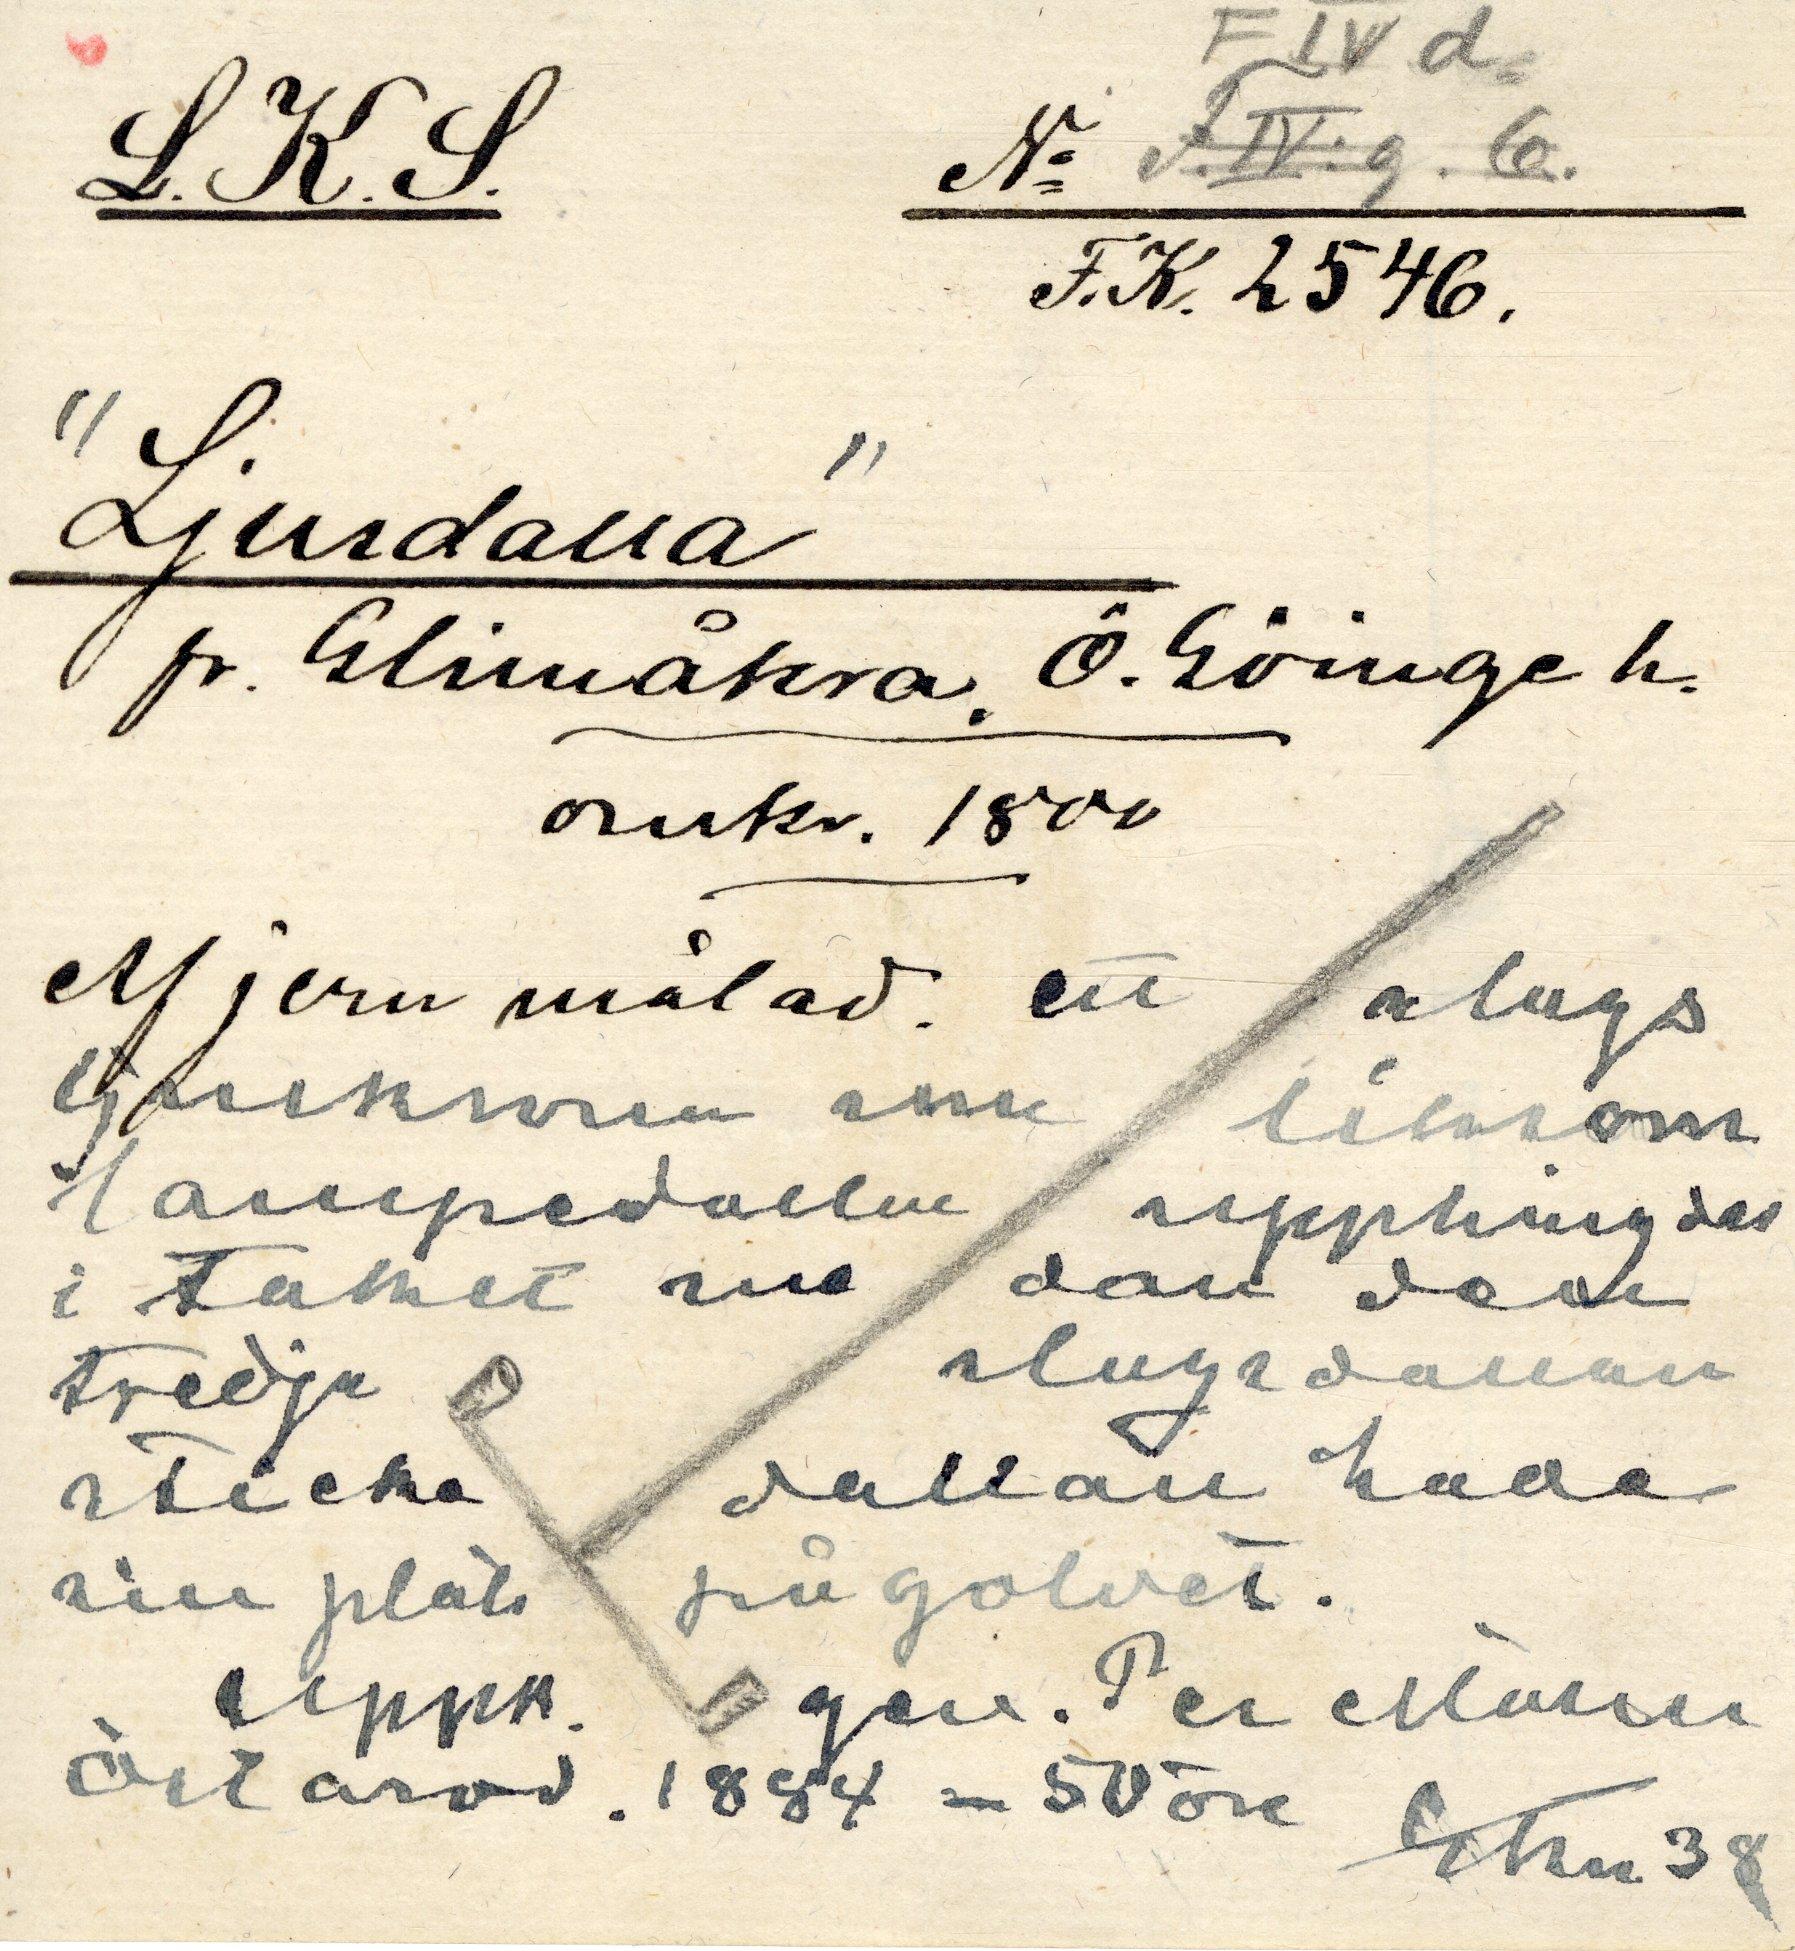 F IV d.
L. K. S.
№ F. IV. g. 6.
F.K. 2546.
"Ljusdalla"
fr. Glimåkra. Ö. Göinge h.
omkr. 1800
Af jern målad. ett slags
ljuskrona som liksom
lampedallue upphängdes
i taket me dan den
tredje slugsdallan
sticke dallan hade
sin plats på golvet.
uppk. gen. Per Månsn
Östarod. 1884 = 50 öre
38